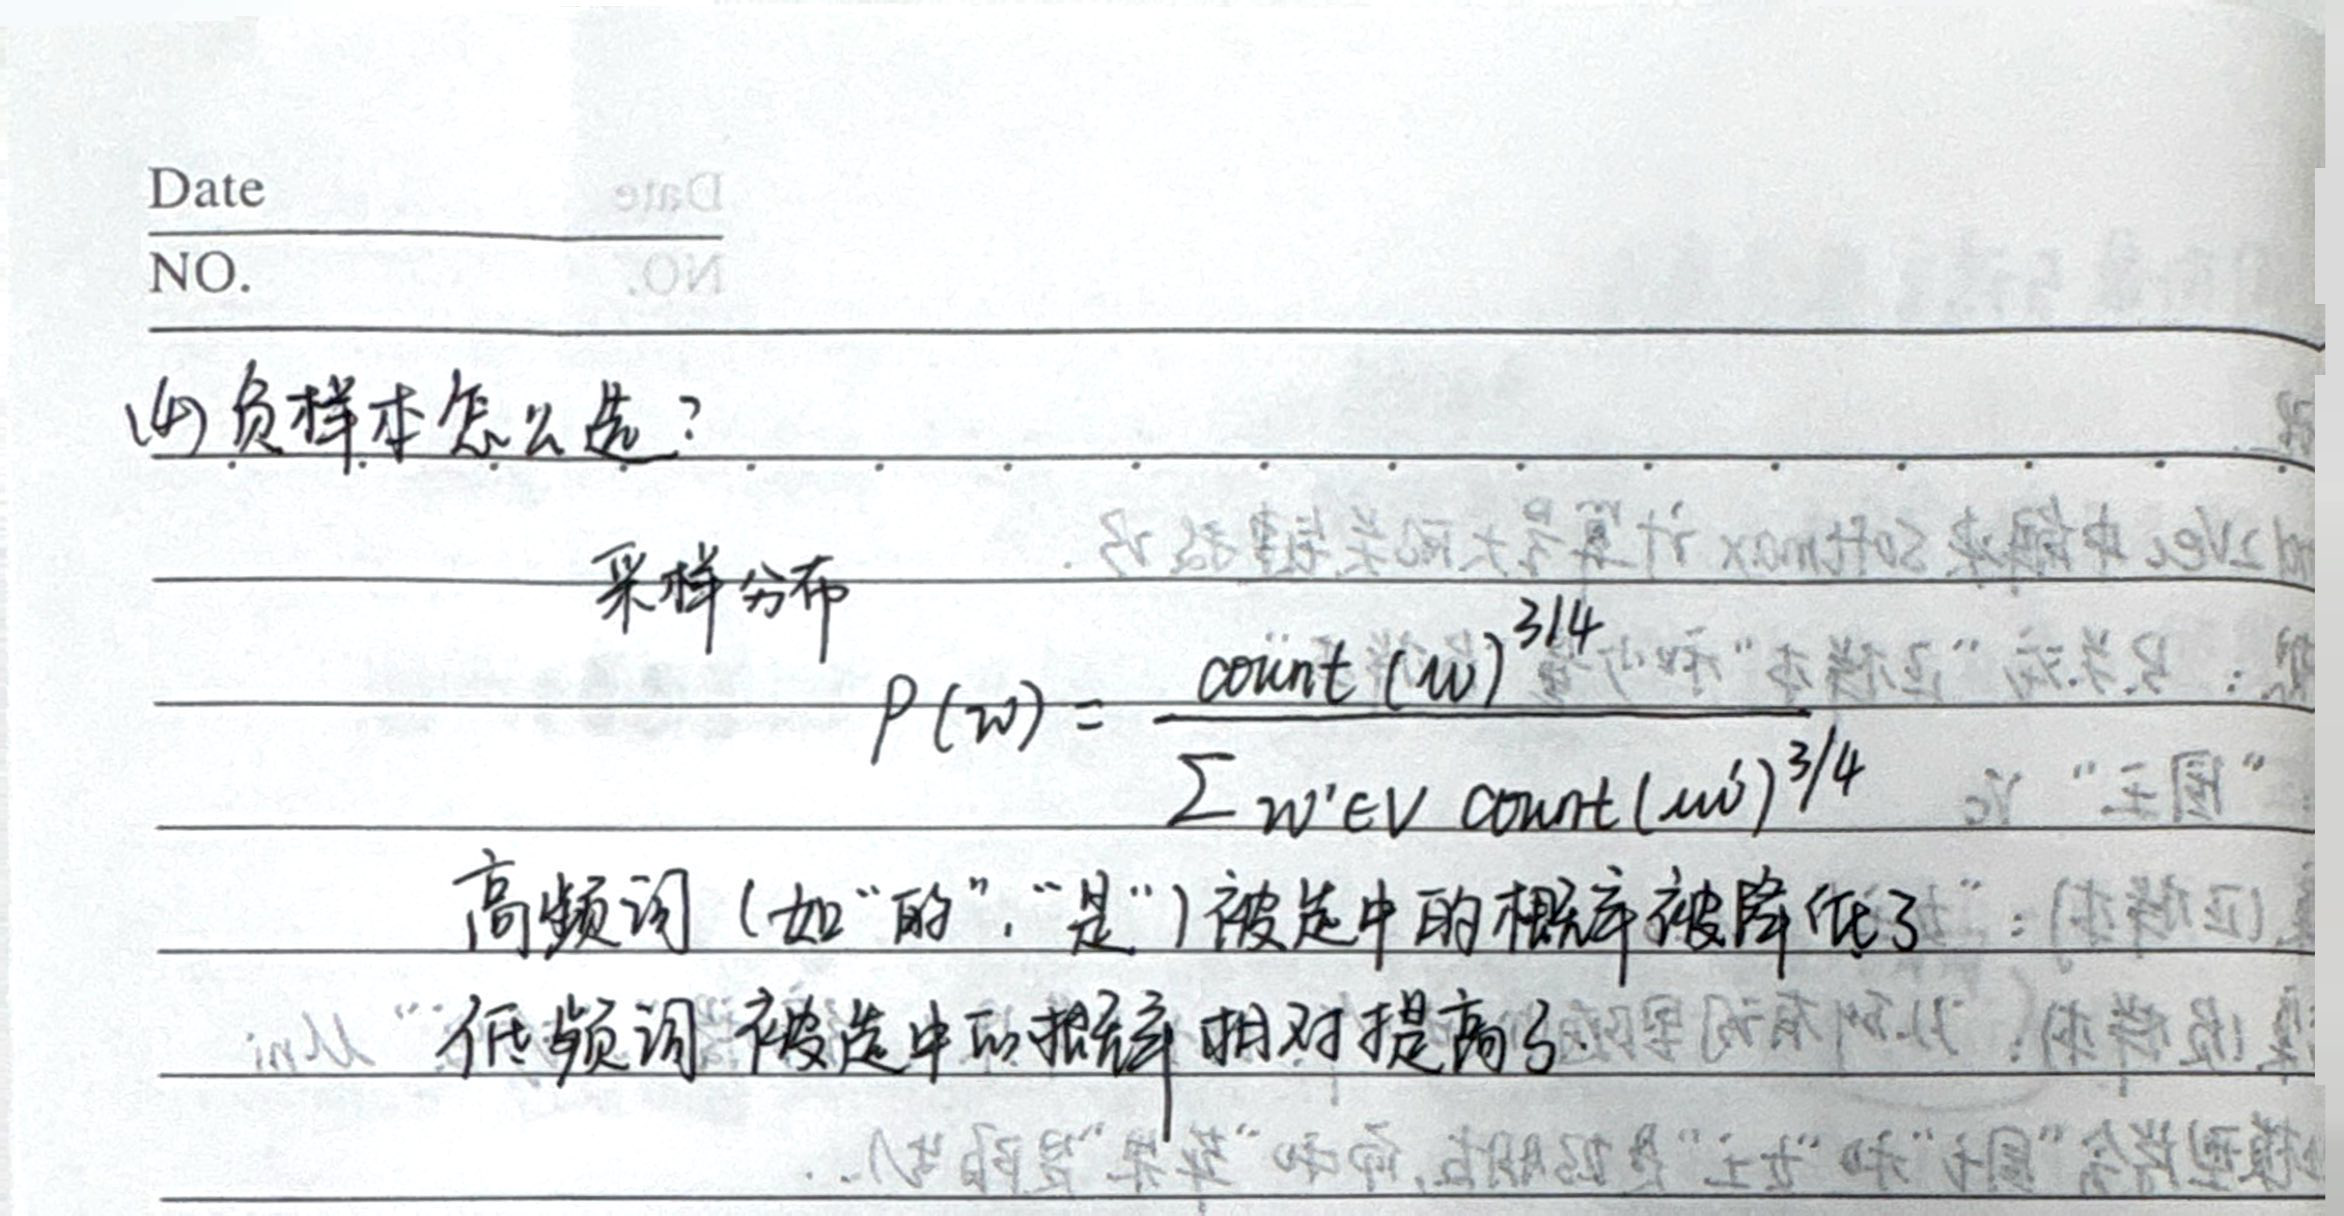 Date
NO.
(4) 负样本怎么选?
采样分布
P(w) = count (w)^3/4 / Σ w'∈V count(w')^3/4
高频词 (如“的”.“是”) 被选中的概率被降低了
低频词 被选中的概率 相对提高了.